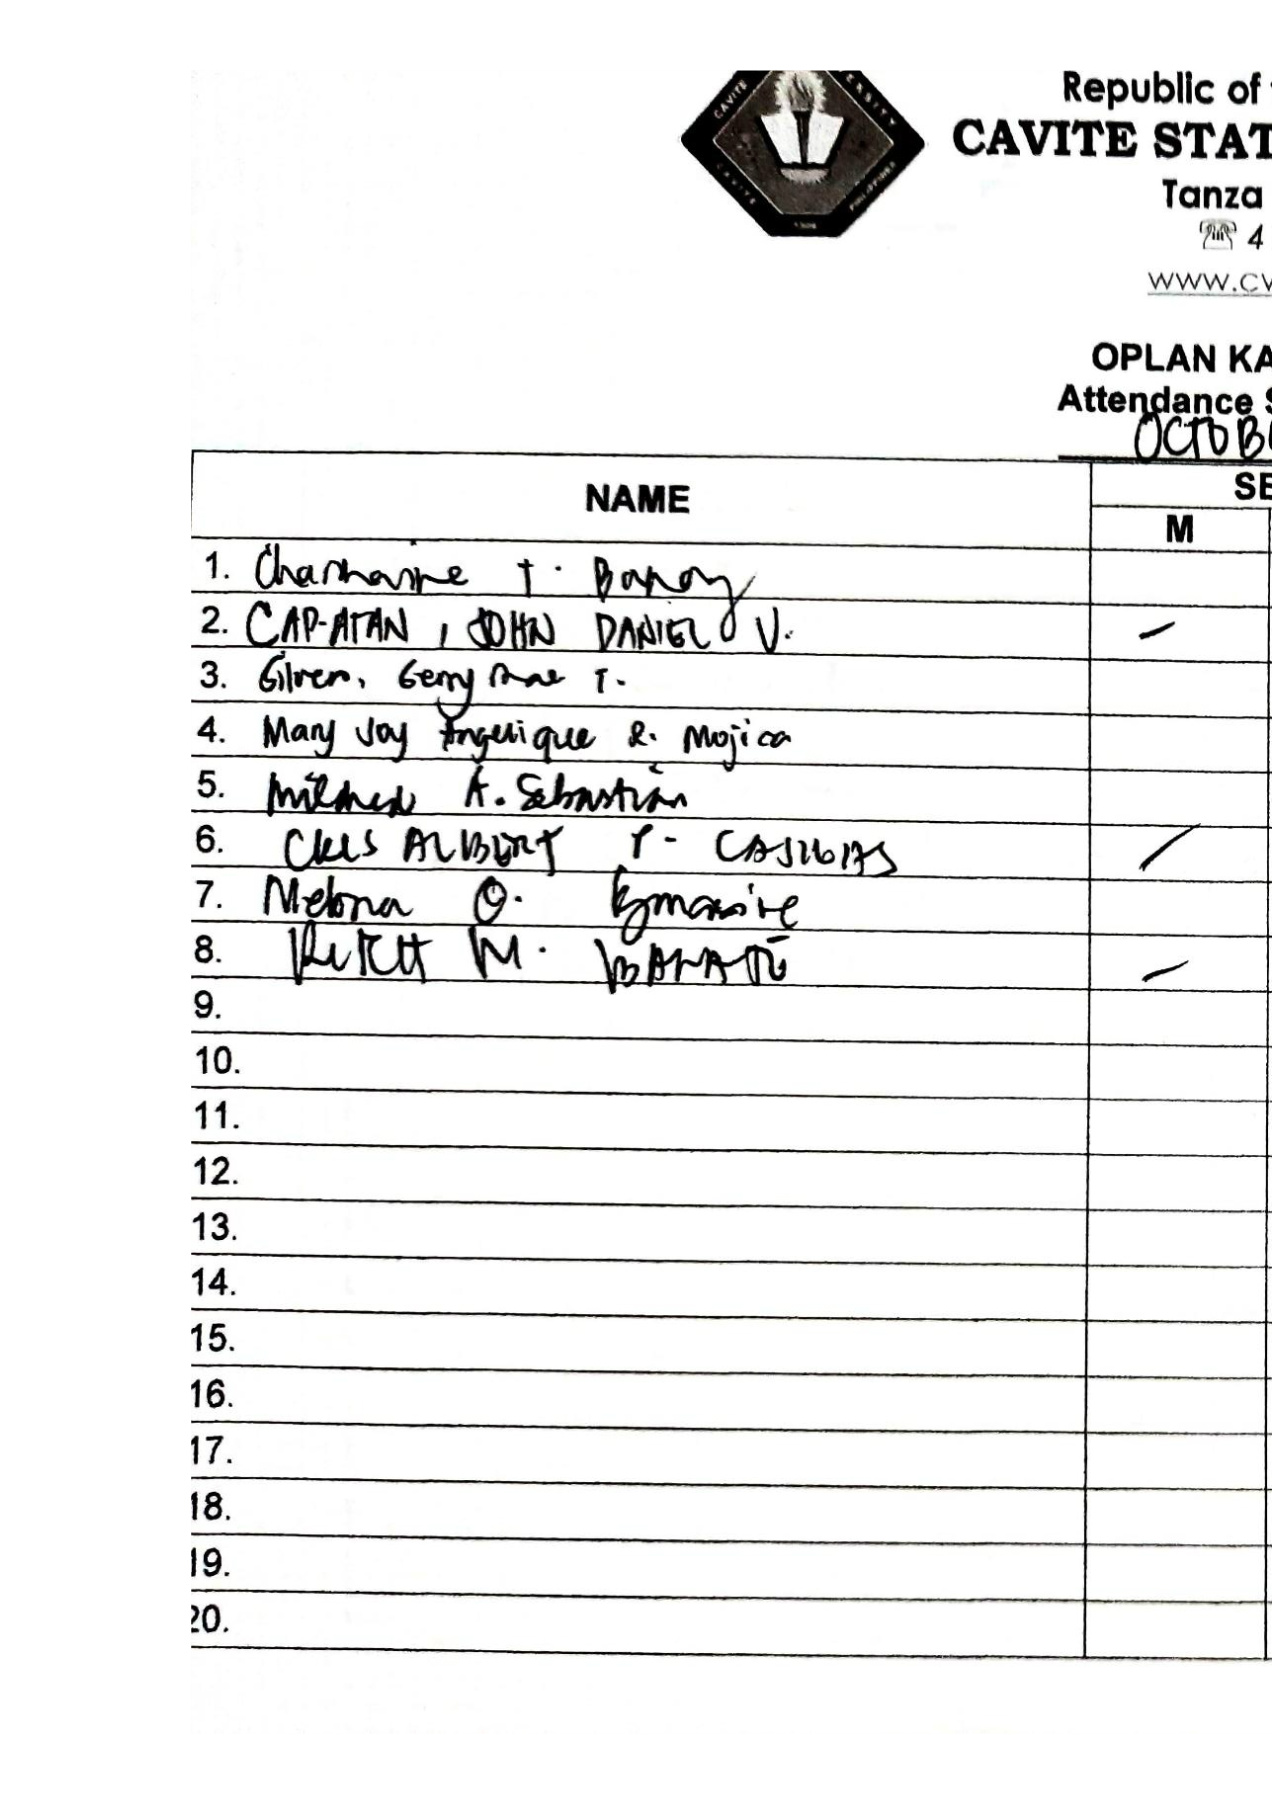 CAVITE
Republic of
CAVITE STAT
Tanza
☏ 4
www.cv
OPLAN KA
Attendance S
OCTOB
NAME
SE
M
1. Charmaine T.
2. CAP-ATAN, JOHN DANIEL V.
3. Gerry Mae T.
4. Mary Joy Angelique R. Mojica
5. Mildred A. Sebastian
6. CRIS ALBERT
7. Melona O.
8. M.
9.
10.
11.
12.
13.
14.
15.
16.
17.
18.
19.
20.